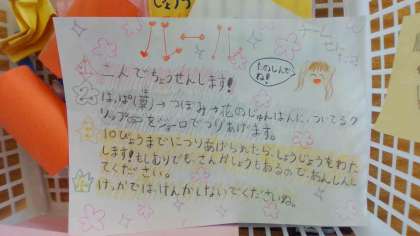 しょう
たのしんで
ね!
二人でちょうせんします!
はっぱ(葉)→つぼみ→花のじゅんばんに、ついてるク
リップをジョーロでつりあげます。
10びょうまでにつりあげられたら、しょうじょうをわた
します!もしむりでも、さんかしょうもあるので、あんしんし
てください。
けっかでは、けんかしないでくださいね。